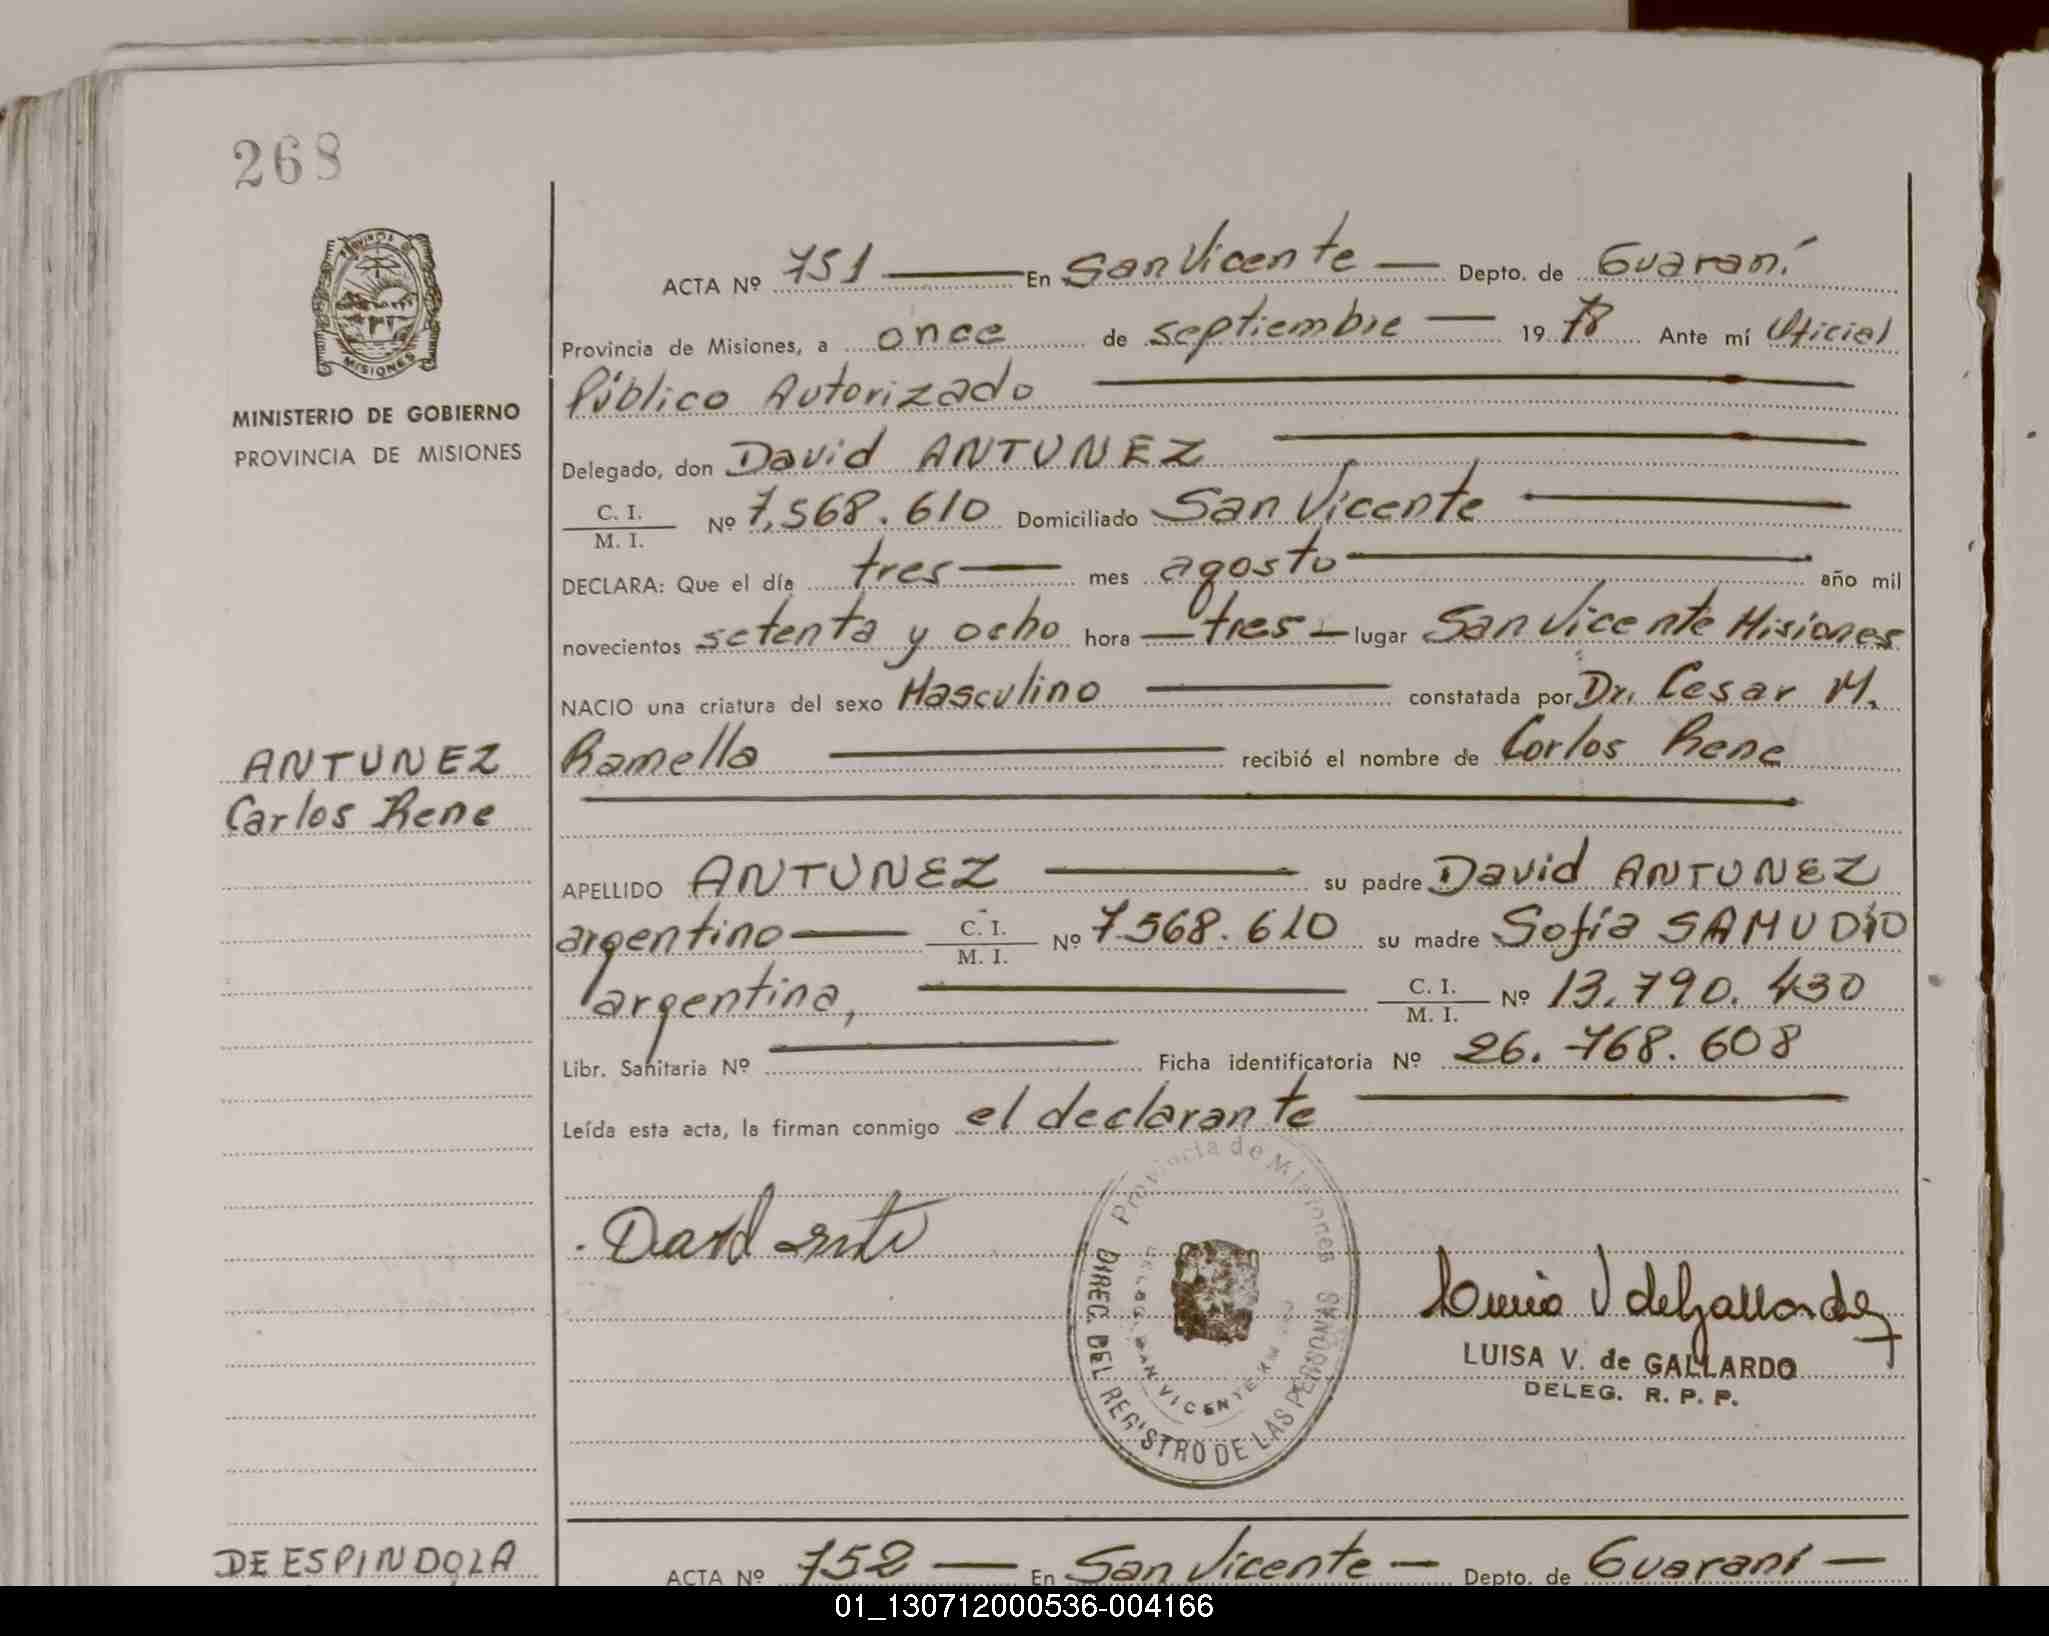 268
PROVINCIA DE
MISIONES
MINISTERIO DE GOBIERNO
PROVINCIA DE MISIONES
ACTA Nº 751 En San Vicente Depto. de Guaraní
Provincia de Misiones, a once de septiembre 19 78 Ante mí Oficial
Público Autorizado
Delegado, don David ANTUNEZ
C. I.
M. I. Nº 7,568.610 Domiciliado San Vicente
DECLARA: Que el día tres mes agosto año mil
novecientos setenta y ocho hora tres lugar San Vicente Misiones
NACIO una criatura del sexo Masculino constatada por Dr. Cesar M.
Ramella recibió el nombre de Carlos Rene
ANTUNEZ
Carlos Rene
APELLIDO ANTUNEZ su padre David ANTUNEZ
argentino C. I. M. I. Nº 7.568.610 su madre Sofía SAMUDIO
argentina, C. I. M. I. Nº 13.790.430
Libr. Sanitaria Nº Ficha identificatoria Nº 26.768.608
Leída esta acta, la firman conmigo el declarante
Provincia de Misiones
DIREC. DEL REGISTRO DE LAS PERSONAS
SAN VICENTE
David
V de Gallardo
LUISA V. de GALLARDO
DELEG. R. P. P.
DE ESPINDOLA
ACTA Nº 752 En San Vicente Depto. de Guaraní
01_130712000536-004166